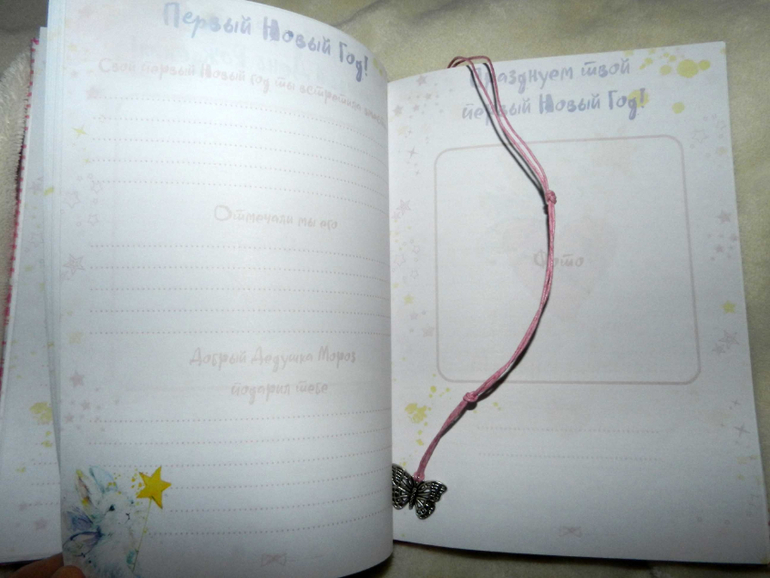 Первый Новый Год!
Свой первый Новый год ты встретил
Отмечали мы его
Добрый Дедушка Мороз
подарил тебе
Празднуем твой
первый Новый Год!
Фото